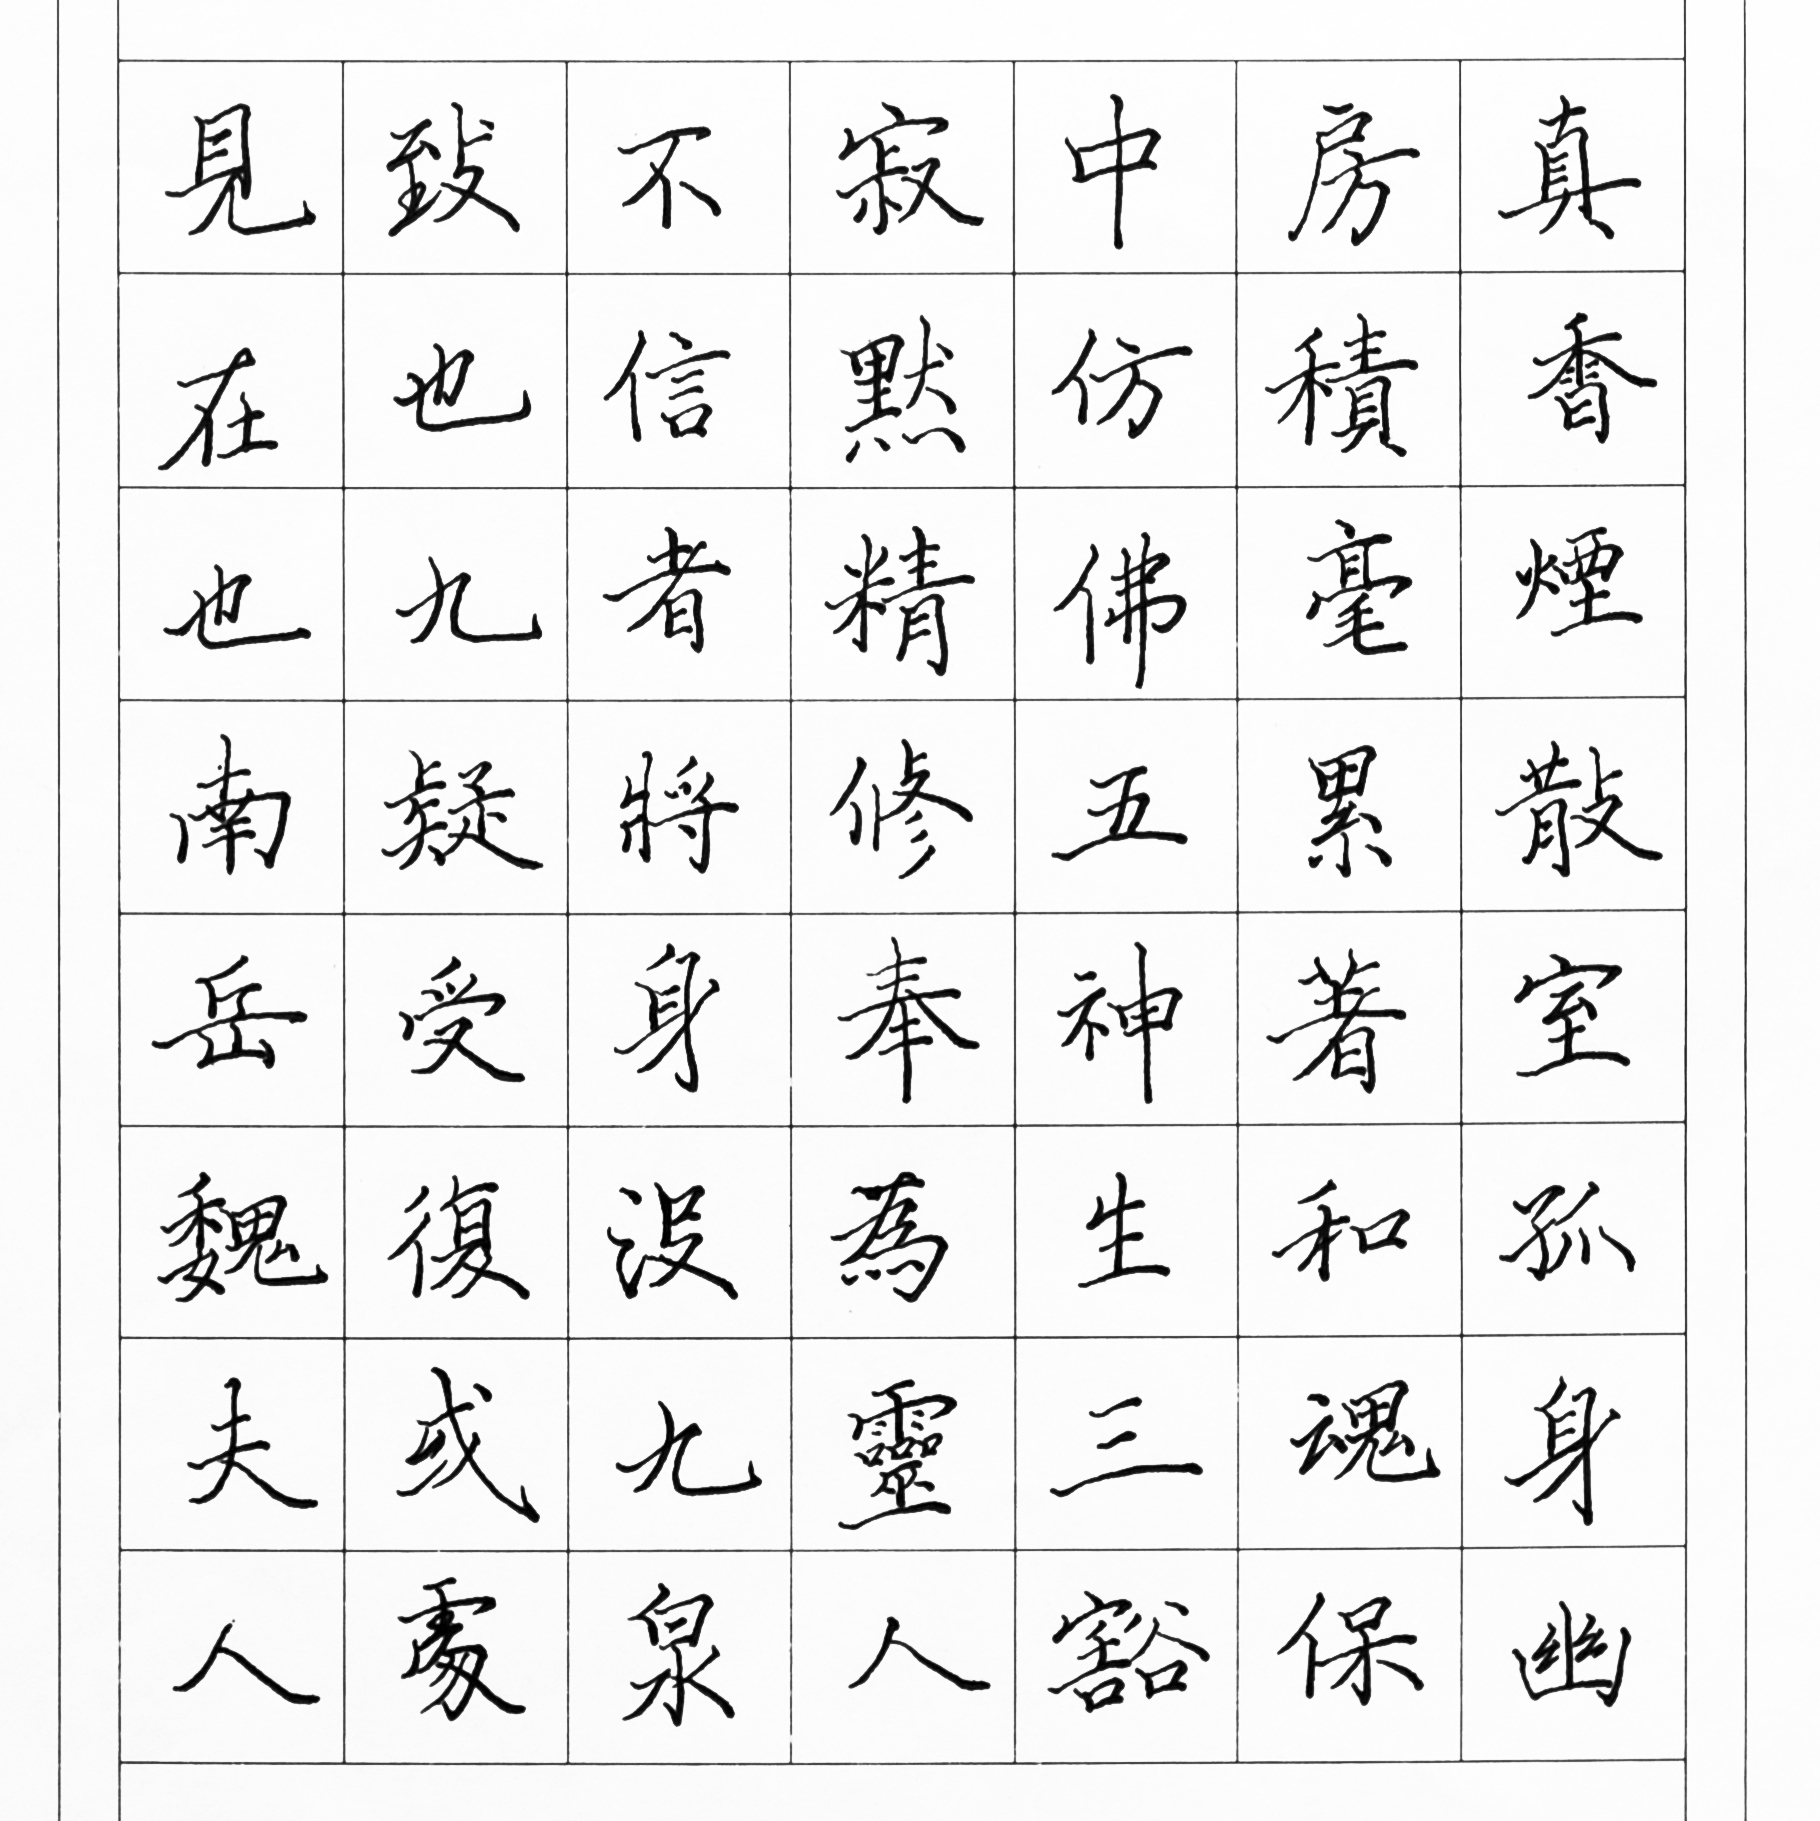 真香煙散室孤身幽
房積毫累著和魂保
中仿佛五神生三豁
寂默精修奉為靈人
不信者將身沒九泉
致也九疑受復或處
見在也南岳魏夫人